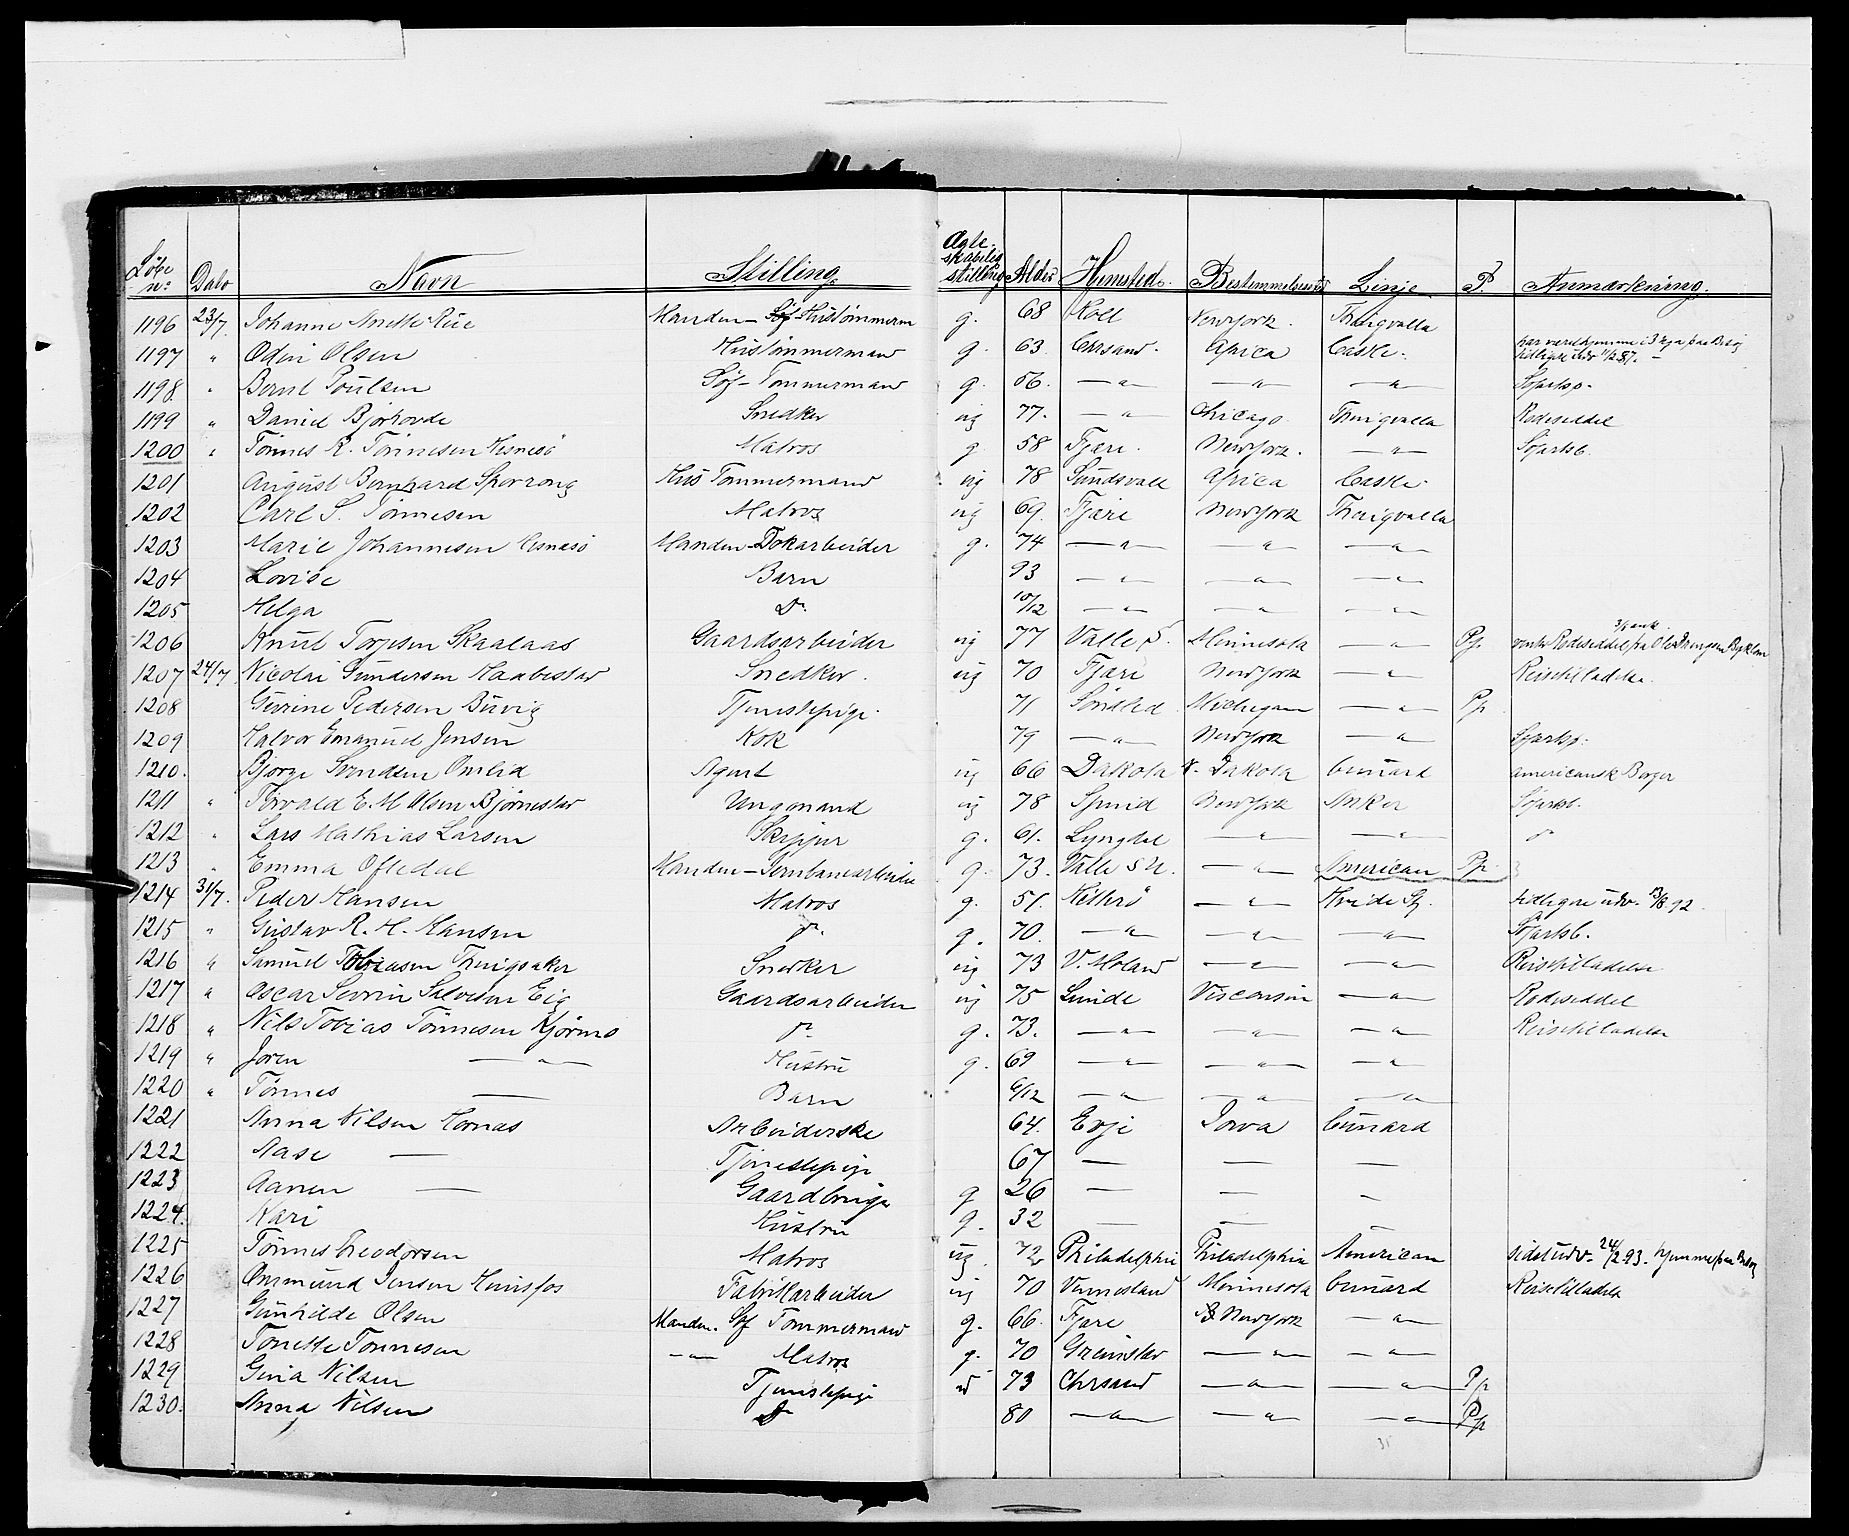 Løbe no: Dato Navn Stilling. Ægteskabelig stilling Alder Hjemsted. Bestemmelsessted Linje P. Anmærkning.
1196 23/7. Johanne Anette Rue Manden - Hustömmerm g. 68 New York. Thingvalla
1197 " Odin Olsen Hustömmermand g. 63 Chrsand. Africa Castle. har været hjemme i 3 paa Besøg
1198 " Bernt Poulsen Söf-Tömmermand g. 56. — " — — " — — " —
1199 " Daniel Bjorhovde Snedker ug 77. — " Chicago Thingvalla Rodeseddel
1200 " Tönnes R. Tönnesen Hesnesö Matros g 58 Fjære. New York. — " —
1201 August Bernhard Sporrong Hus Tömmermand ug 78 Sundsvall Africa Castle.
1202 Carl S. Tönnesen Matros ug 69. Fjære New York Thingvalla
1203 Marie Johannesen Hesnesö Manden - Dokarbeider g. 74 — " — — " — — " —
1204 Lovise Barn 93 — " — — " — — " —
1205 Helga Do. 10/12 — " — — " — — " —
1206 Knut Torjesen Skaalaas Gaardsarbeider ug 77 Valle S. Minnesota — " — Pp.
1207 24/7 Nicolai Gundersen Haabestad Snedker. ug 70 Fjære New York — " — Reisetilladelse.
1208 Gurine Pedersen Buvig Tjenestepige. 71 Söndeled Michigan — " — Pp.
1209 Halvor Emanuel Jensen Kok 79 — " — New York — " —
1210. Bjorge Svendsen Omlid Agent ug 66 Dakota N. Dakota Cunard americansk Borger
1211 " Torvald E. M. Olsen Björnestad Ungmand ug 78 Spind New York Anker
1212 " Lars Mathias Larsen Skipper g. 61. Lyngdal — " — — " —
1213 " Emma Oftedal Manden - Jernbanearbeider g. 73. Valle — " American Pp.
1214 31/7. Peder Hansen Matros g. 51. Hitterö — " — Hvide Stj. tidligere udv. 13/8 92.
1215 " Gustav R. H. Hansen do. g. 70. — " — — " — — " —
1216 " Samuel Tobiasen Thingsaker Snedker ug 73 V. Moland — " — — " — Reisetilladelse
1217 " Oscar Severin Salvesen Eig Gaardsarbeider ug 75 Lunde Visconsin — " — Rodeseddel
1218 " Nils Tobias Tönnesen Kjörmo do. g. 73. — " — — " — — " — Reisetilladelse
1219 " Joren — " — Hustru g. 69 — " — — " — — " —
1220 " Tönnes — Barn 9/12 — " — — " — — " —
1221 Anna Nilsen Hornas Arbeiderske 64. Evje Iowa Cunard
1222 Aase — Tjenestepige 67 — — —
1223 Aanen — Gaardbruger g 26 — — —
1224. Kari Hustru g. 32 — — —
1225 Tönnes Theodorsen Matros ug. 72 Philadelphia Philadelphia American sidst udv. 24/2 93. hjemme paa Besøg
1226 Omsmund Jensen Hunsfos Fabrikarbeider ug 70 Vennesland Minnesota Cunard Reisetilladelse
1227 Gunhilde Olsen Manden. Söf Tömmermand g. 66. Fjære New York — " —
1228 Tonette Tönnesen — " — Matros g. 70 Grimstad — " — — " —
1229 Gina Nilsen Tjenestepige 73 Chrsand — " — — " — Pp
1230. Anna Nilsen Do 80 — " — — " — — " — Pp